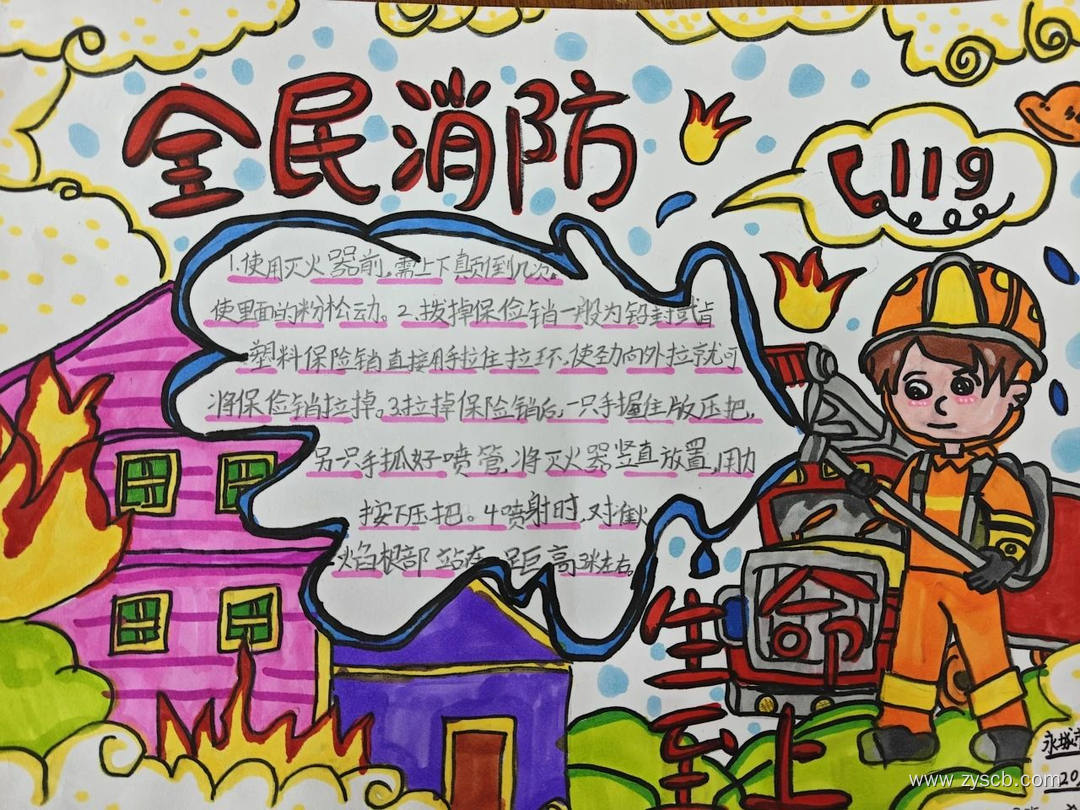 全民消防
119
1.使用灭火器前,需上下颠倒几次,
使里面的粉松动。2.拨掉保俭销一般为铅封或者
塑料保险销直接用手拉住拉环、使劲向外拉就可
将保俭销拉掉。3.拉掉保险销后,一只手握住版压把,
另只手抓好喷管,将灭火器竖直放置,用力
按下压把。4.喷射时,对准火
焰根部站在 距离 3米左右
生命
至上
永城市
20
www.zyscb.com